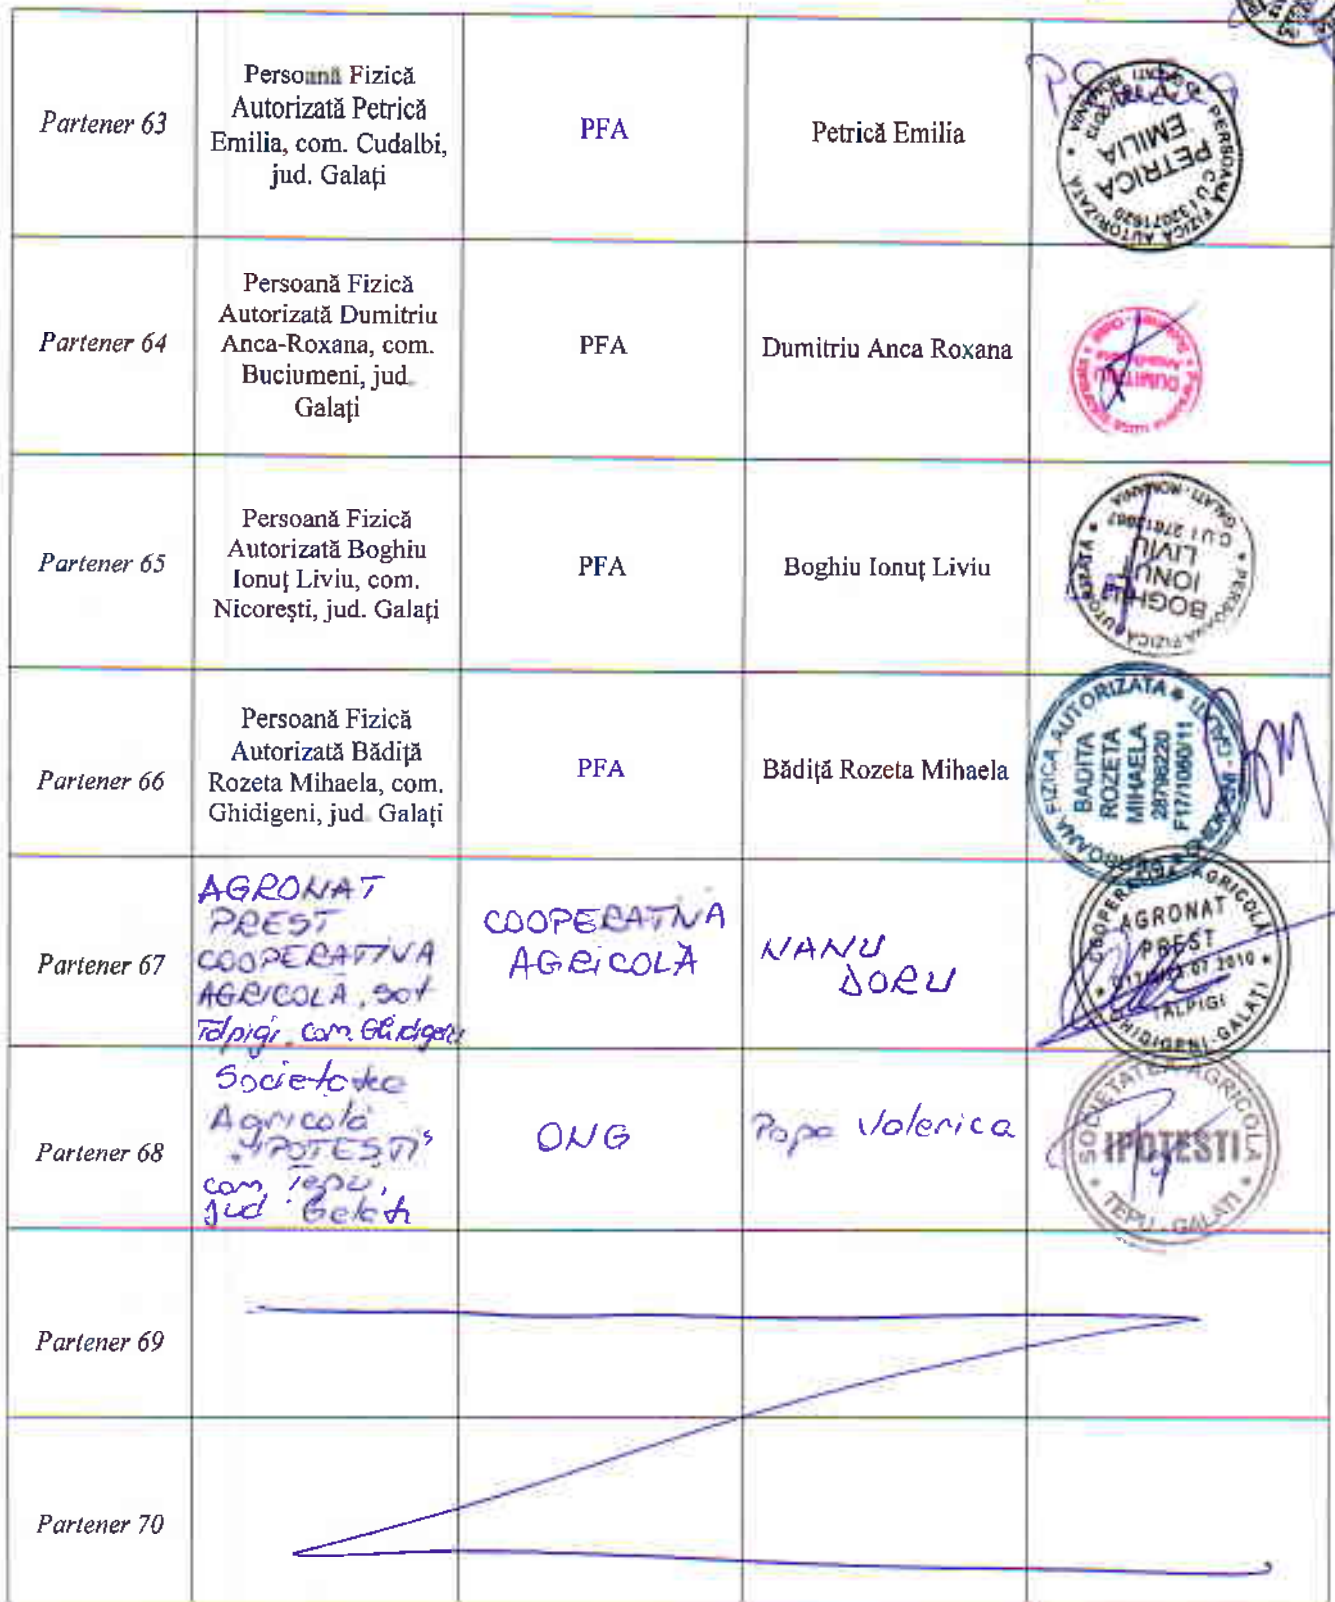 Partener 63
Persoană Fizică
Autorizată Petrică
Emilia, com. Cudalbi,
jud. Galați
PFA
Petrică Emilia
PERSOANĂ FIZICĂ AUTORIZATĂ
PETRICA
EMILIA
Partener 64
Persoană Fizică
Autorizată Dumitriu
Anca-Roxana, com.
Buciumeni, jud.
Galați
PFA
Dumitriu Anca Roxana
DUMITRIU
Partener 65
Persoană Fizică
Autorizată Boghiu
Ionuț Liviu, com.
Nicorești, jud. Galați
PFA
Boghiu Ionuț Liviu
GALATI - ROMANIA
BOGHIU
IONU
LIVIU
Partener 66
Persoană Fizică
Autorizată Bădiță
Rozeta Mihaela, com.
Ghidigeni, jud. Galați
PFA
Bădiță Rozeta Mihaela
BADITA
ROZETA
MIHAELA
28796220
F17/1060/11
Partener 67
AGRONAT
PREST
COOPERATIVA
AGRICOLA, sat
Talpigi, com. Ghidigeni
COOPERATIVA
AGRICOLĂ
NANU
DORU
COOPERATIVA AGRICOLĂ
AGRONAT
PREST
TALPIGI
GHIDIGENI-GALAȚI
Partener 68
Societatea
Agricolă
"IPOTEȘTI"
com. Țepu,
jud. Galați
ONG
Popa Valerica
SOCIETATEA AGRICOLA
IPOTESTI
TEPU - GALATI
Partener 69
Partener 70